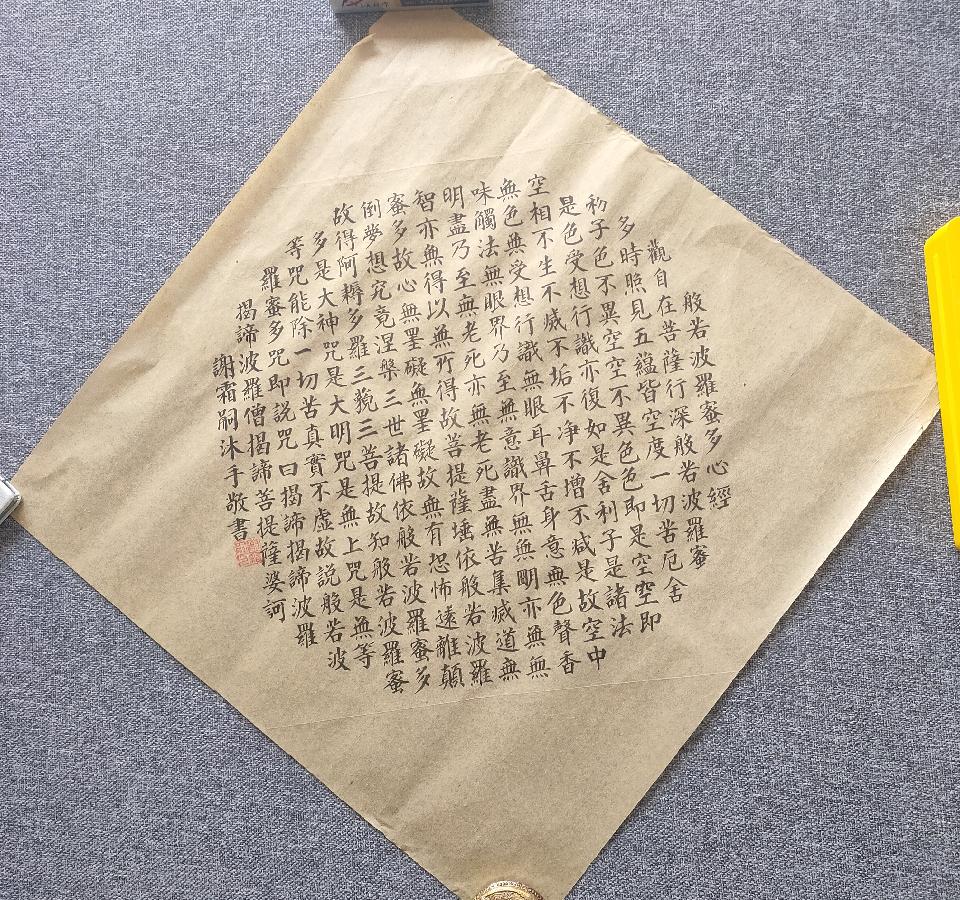 般若波羅蜜多心經
觀自在菩薩行深般若波羅蜜
多時照見五蘊皆空度一切苦厄舍
利子色不異空空不異色色即是空空即
是色受想行識亦復如是舍利子是諸法
空相不生不滅不垢不净不增不减是故空中
無色無受想行識無眼耳鼻舌身意無色聲香
味觸法無眼界乃至無意識界無無明亦無無
明盡乃至無老死亦無老死盡無苦集滅道無
智亦無得以無所得故菩提薩埵依般若波羅
蜜多故心無罣礙無罣礙故無有恐怖遠離顛
倒夢想究竟涅槃三世諸佛依般若波羅蜜多
故得阿耨多羅三藐三菩提故知般若波羅蜜
多是大神咒是大明咒是無上咒是無等
等咒能除一切苦真實不虛故說般若波
羅蜜多咒即說咒曰揭諦揭諦波羅
揭諦波羅僧揭諦菩提薩婆訶
謝霜嗣沐手敬書